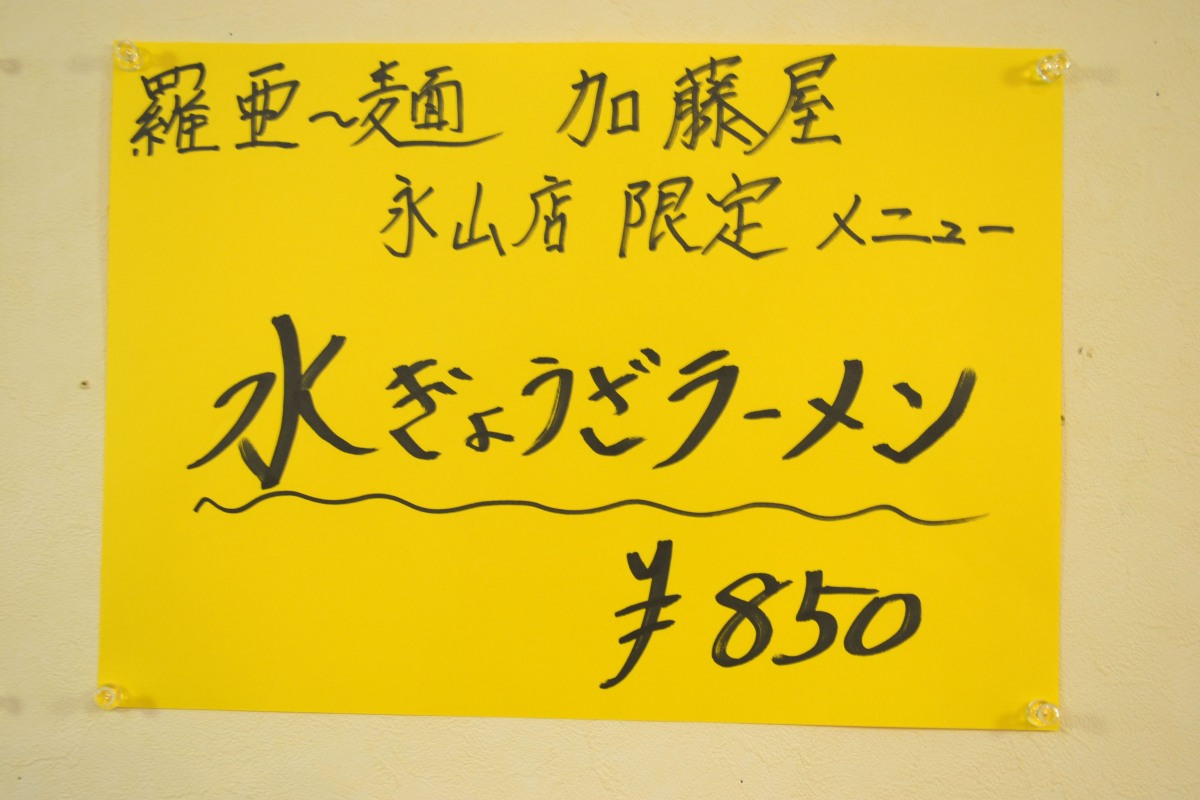 羅亜〜麺 加藤屋
永山店 限定 メニュー
水ぎょうざラーメン
¥850